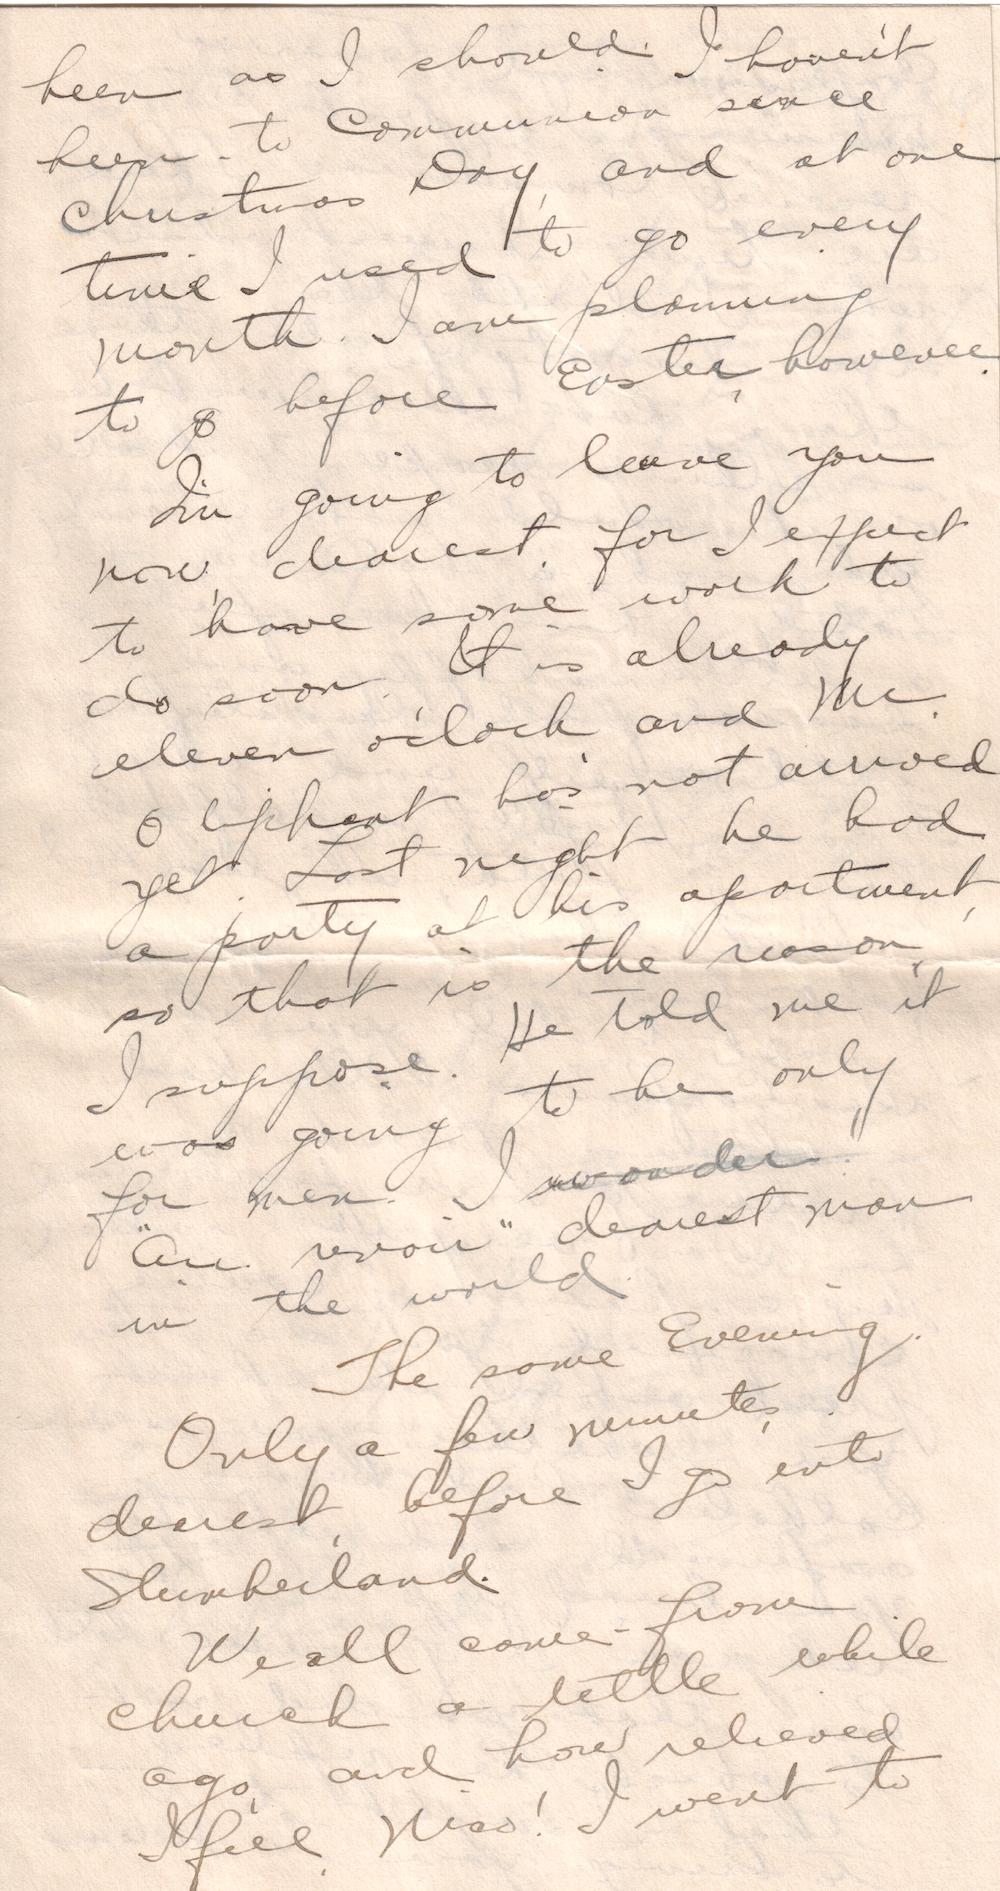 been as I should. I haven't
been to Communion since
Christmas Day, and at one
time I used to go every
month. I am planning
to go before Easter, however.
I'm going to leave you
now, dearest, for I expect
to have some work to
do soon. It is already
eleven o'clock and Mr.
Oliphant has not arrived
yet. Last night he had
a party at his apartment,
so that is the reason,
I suppose. He told me it
was going to be only
for men. I wonder.
"Au revoir" dearest man
in the world.
The same Evening.
Only a few minutes,
dearest, before I go into
Slumberland.
We all came from
church a little while
ago, and how relieved
I feel, Niso! I went to